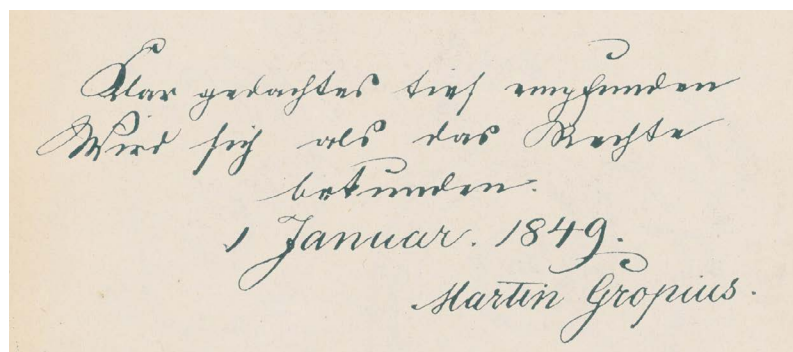 Klar gedachtes tief empfunden
Wird sich als das Rechte
bekunden.
1 Januar. 1849.
Martin Gropius.